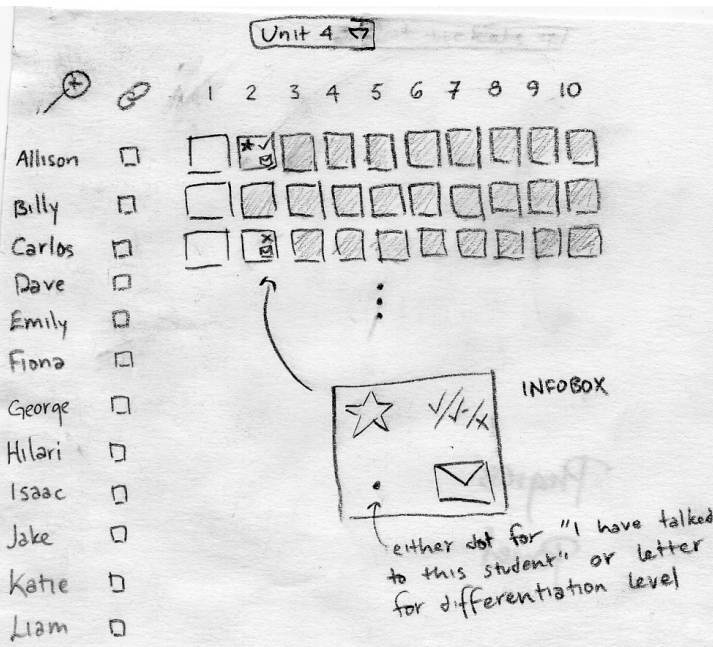 Unit 4
1 2 3 4 5 6 7 8 9 10
Allison
Billy
Carlos
Dave
Emily
Fiona
George
Hilari
Isaac
Jake
Katie
Liam
INFOBOX
✓/✓-/x
either dot for "I have talked
to this student" or letter
for differentiation level